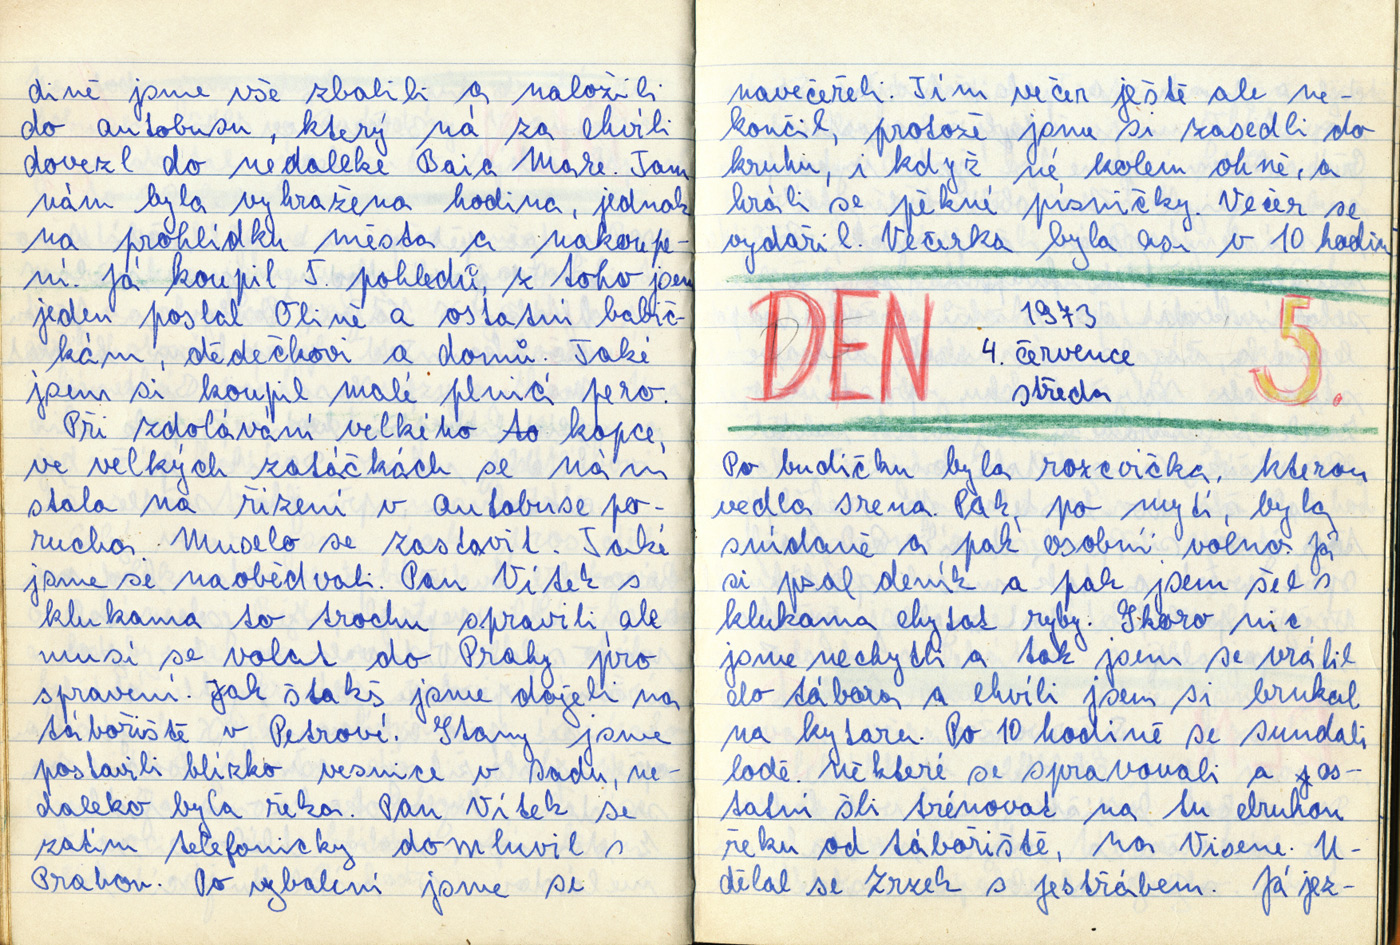 dině jsme vše zbalili a naložili
do autobusu, který ná za chvíli
dovezl do nedaleké Baia Mare. Tam
nám byla vyhražena hodina, jednak
na prohlídku města a nakoupe-
ní. Já koupil 5. pohledů, z toho jsem
jeden poslal Olině a ostatní babič-
kám, dědečkovi a domů. Také
jsem si koupil malé plnící pero.
Při zdolávání velkého to kopce,
ve velkých zatáčkách se námi
stala na řízení v autobuse po-
rucha. Muselo se zastavit. Také
jsme se naobědvali. Pan Vítek s
klukama to trochu spravili, ale
musí se volat do Prahy pro
spravení. Jak štakš jsme dojeli na
tábořiště v Petrově. Stany jsme
postavili blízko vesnice v sadu, ne-
daleko byla řeka. Pan Vítek se
zatím telefonicky domluvil s
Prahou. Po vybalení jsme se
navečeřeli. Tím večer ještě ale ne-
končil, protože jsme si zasedli do
kruhu, i když né kolem ohně, a
hráli se pěkné písničky. Večer se
vydařil. Večerka byla asi v 10 hodin
DEN 1973 5.
4. července
středa
Po budíčku byla rozcvička, kterou
vedla Srena. Pak, po mytí, byla
snídaně a pak osobní volno. Já
si psal deník a pak jsem šel s
klukama chytat ryby. Skoro nic
jsme nechytli a tak jsem se vrátil
do tábora a chvíli jsem si brnkal
na kytaru. Po 10 hodině se sundali
lodě. Některé se spravovali a os-
tatní šli trénovat na tu druhou
řeku od tábořiště, na Visene. U-
dělal se Zrzek s jestřábem. Já jez-